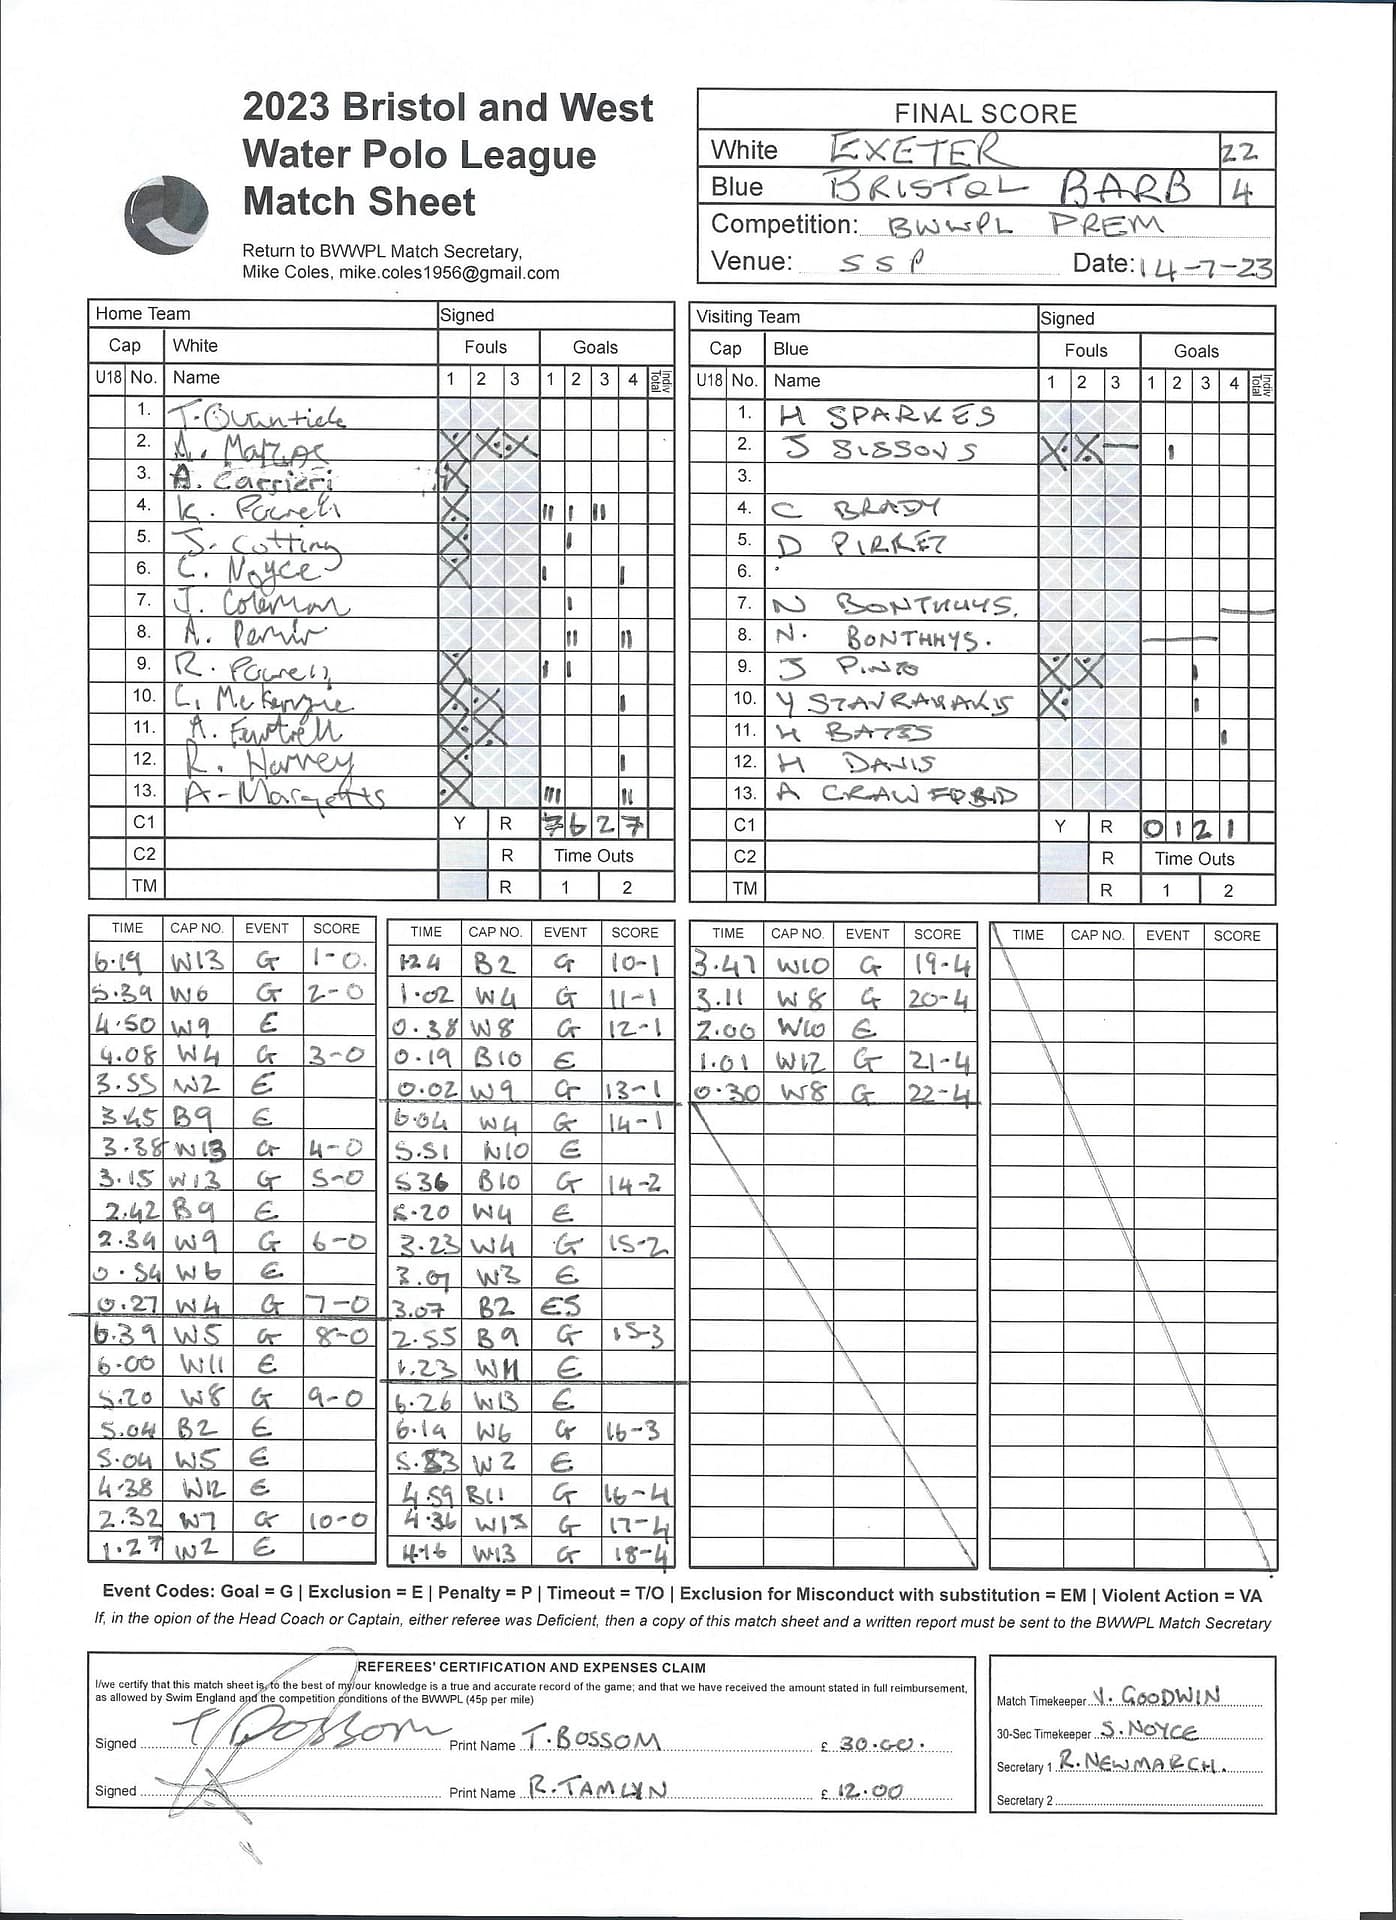 2023 Bristol and West
Water Polo League
Match Sheet
Return to BWWPL Match Secretary,
Mike Coles, mike.coles1956@gmail.com
FINAL SCORE
White EXETER 22
Blue BRISTOL BARB 4
Competition: BWWPL PREM
Venue: SSP Date: 14-7-23
Home Team Signed
Cap White Fouls Goals
U18 No. Name 1 2 3 1 2 3 4 Indiv Total
1.
2. A.
3. A. Carrieri
4. K. Powell
5. J. Cotting
6. C. Noyce
7. J. Coleman
8. A.
9. R. Powell
10. C. McKenzie
11. A.
12. R. Harvey
13. A-Margetts
C1 Y R 7 6 2 7
C2 R Time Outs
TM R 1 2
Visiting Team Signed
Cap Blue Fouls Goals
U18 No. Name 1 2 3 1 2 3 4 Indiv Total
1. H SPARKES
2. J SISSONS
3.
4. C BRADY
5. D
6.
7. N BONTHUYS.
8. N. BONTHHYS.
9. J PINTO
10. Y
11. H BATES
12. H DAVIS
13. A CRAWFORD
C1 Y R 0 1 2 1
C2 R Time Outs
TM R 1 2
TIME CAP NO. EVENT SCORE
6.19 W13 G 1-0.
5.39 W6 G 2-0
4.50 W9 E
4.08 W4 G 3-0
3.55 W2 E
3.45 B9 E
3.38 W13 G 4-0
3.15 W13 G 5-0
2.42 B9 E
2.34 W9 G 6-0
0.54 W6 E
0.27 W4 G 7-0
6.39 W5 G 8-0
6.00 W11 E
5.20 W8 G 9-0
5.04 B2 E
5.04 W5 E
4.38 W12 E
2.32 W7 G 10-0
1.27 W2 E
TIME CAP NO. EVENT SCORE
1.24 B2 G 10-1
1.02 W4 G 11-1
0.38 W8 G 12-1
0.19 B10 E
0.02 W9 G 13-1
6.04 W4 G 14-1
5.51 W10 E
5.36 B10 G 14-2
5.20 W4 E
3.23 W4 G 15-2
W3 E
3.07 B2 ES
2.55 B9 G 15-3
1.23 W11 E
6.26 W13 E
6.19 W6 G 16-3
W2 E
4.59 B11 G 16-4
4.36 W13 G 17-4
4.16 W13 G 18-4
TIME CAP NO. EVENT SCORE
3.47 W10 G 19-4
3.11 W8 G 20-4
2.00 W10 E
1.01 W12 G 21-4
0.30 W8 G 22-4
TIME CAP NO. EVENT SCORE
Event Codes: Goal = G | Exclusion = E | Penalty = P | Timeout = T/O | Exclusion for Misconduct with substitution = EM | Violent Action = VA
If, in the opion of the Head Coach or Captain, either referee was Deficient, then a copy of this match sheet and a written report must be sent to the BWWPL Match Secretary
REFEREES' CERTIFICATION AND EXPENSES CLAIM
I/we certify that this match sheet is, to the best of my/our knowledge is a true and accurate record of the game; and that we have received the amount stated in full reimbursement,
as allowed by Swim England and the competition conditions of the BWWPL (45p per mile)
Signed T Bossom Print Name T. BOSSOM £ 30.00.
Signed Print Name R. TAMLYN £ 12.00
Match Timekeeper V. GOODWIN
30-Sec Timekeeper S. NOYCE
Secretary 1 R. NEWMARCH.
Secretary 2